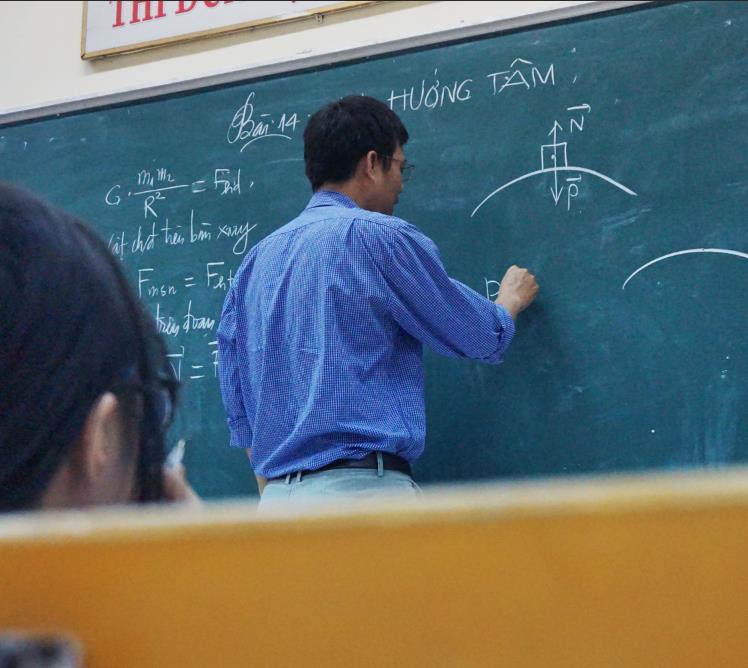 THI Đ
Bài 14 HƯỚNG TÂM
N
P
G. m₁m₂ / R² = Fhd.
chất trên bàn xoay
Fmsn = Fht
trên đoạn
N =
P